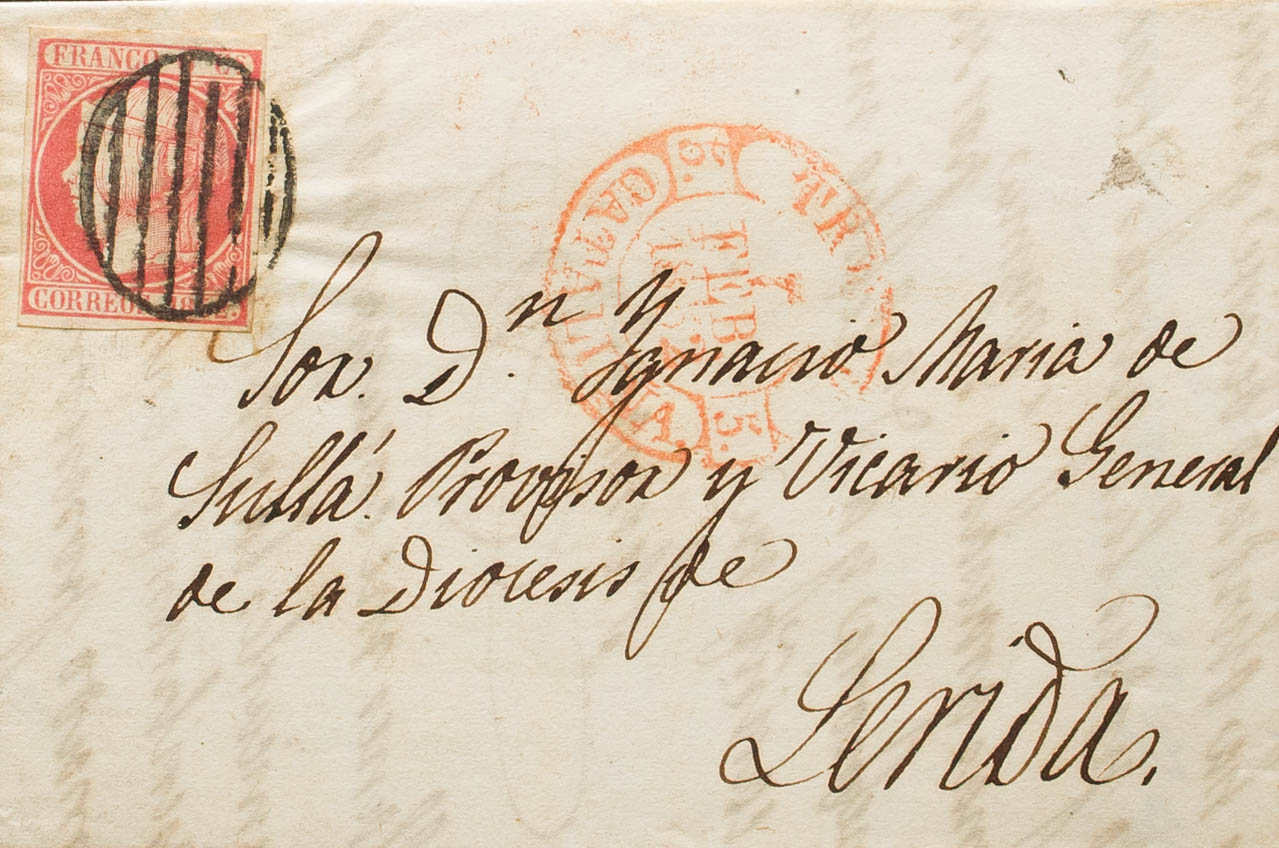 FRANCO
CORREOS 18
CATALUÑA
7
FEB
5.
Sor. Dn. Ygnacio Maria de
Sullá. Provisor y Vicario General
de la Diocesis de
Lerida.